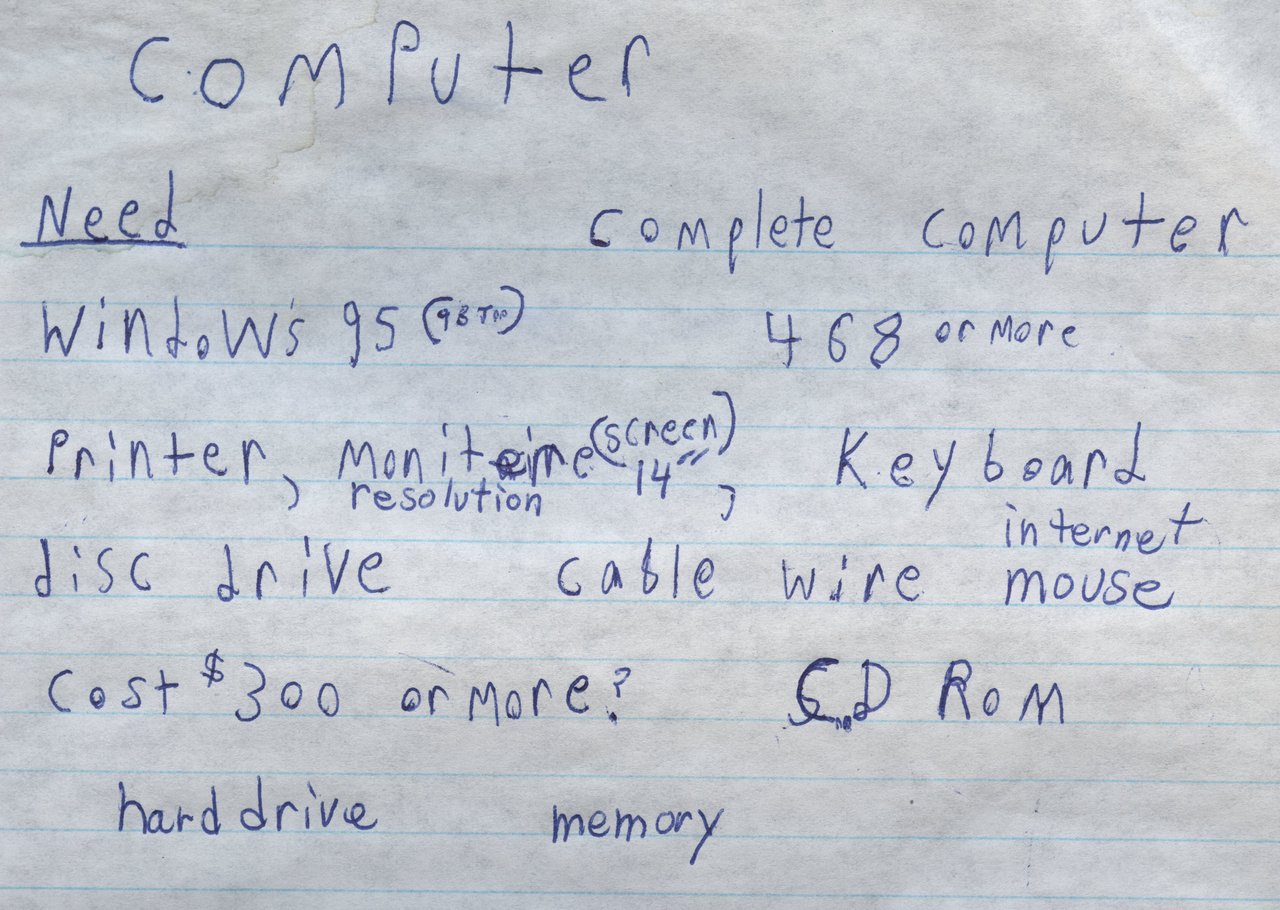 Computer
Need complete computer
Windows 95 (98 Too) 468 or more
Printer, monitor (screen) Keyboard
resolution 14",
internet
disc drive cable wire mouse
Cost $300 or more? CD Rom
hard drive memory